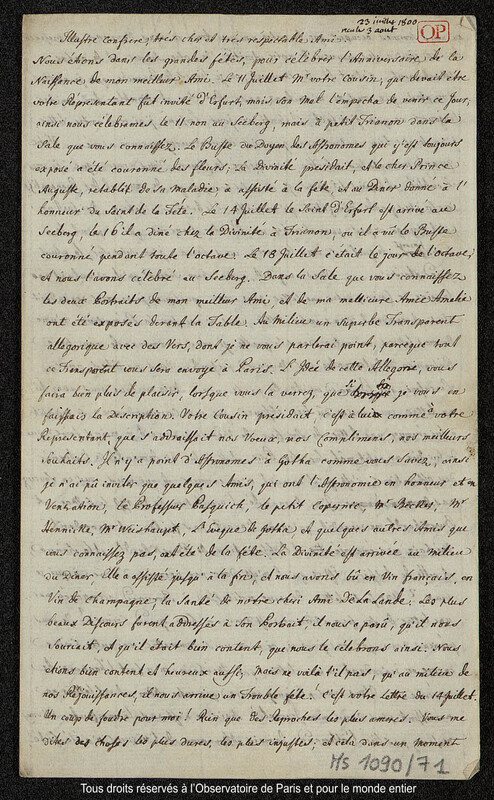 23 juillet 1800
reçule 3 aout
OP
Illustre confrere, très cher et très respectable Ami.
Nous étions dans les grandes fêtes, pour célébrer l'Anniversaire de la
Naissance de mon meilleur Ami. Le 11 Juillet Mr votre Cousin, qui devait être
votre Représentant fut invité d'Erfort, mais son mal l'empecha de venir ce Jour,
ainsi nous célébrames le 11 non au Seeberg, mais à petit Trianon dans la
Sale que vous connaissez. Le Buste du Doyen des Astronomes qui y'est toujours
exposé a été couronné des fleurs, La Divinité presidait, et le cher Prince
Auguste, retabli de sa Maladie a assisté à la fete, et au Diner donné à l'
honneur du Saint de la Fête. Le 14 Juillet le Saint d'Erfort est arrivé au
Seeberg, le 16 il a diné chez la Divinité à Trianon, ou il a vû le Buste
couronné pendant toute l'octave. Le 18 Juillet c'était le jour de l'octave,
et nous l'avons célébré au Seeberg. Dans la Sale que vous connaissez
les deux Portraits de mon meilleur Ami, et de ma meilleure Amie Amelie
ont été exposés devant la Table. Au Milieu un superbe Transparent
allegorique avec des Vers, dont je ne vous parlerai point, parceque tout
ce Transparent vous sera envoyé à Paris. L'Idée de cette Allegorie, vous
faira bien plus de plaisir, lorsque vous la verrez, que si je vous en
faissais la Description. Votre Cousin présidait c'est à lui comme à votre
Représentant, que s'addraissait nos Voeux, nos Complimens, nos meilleurs
souhaits. Il n'y a point d'Astronomes à Gotha comme vous savez, ainsi
je n'ai pû inviter que quelques Amis, qui ont l'Astronomie en honneur et en
Veneration, le Professeur Pasquich, le petit Copernic, Mr Becker, Mr
Hennicke, Mr Weishaupt, L'Eveque de Gotha et quelques autres Amis que
vous connaissez pas, ont été de la fete. La Divinité est arrivée au milieu
du Diner, Elle a assisté jusqu'à la fin, et nous avons bû en Vin français, en
Vin de Champagne, la Santé de notre cheri Ami De La Lande. Les plus
beaux Discours furent addressés à Son Portrait, il nous a parû, qu'il nous
Souriait, et qu'il était bien content, que nous le célébrons ainsi. Nous
étions bien content et heureux aussi, Mais ne voilà t'il pas, qu'au milieu de
nos Rejouissances, il nous arrive un Trouble fête. c'est votre Lettre du 14 Juillet.
Un coup de foudre pour moi! Rien que des Reproches les plus ameres. Vous me
dites des choses les plus dures, les plus injustes, et cela dans un moment
Ms 1090/71
Tous droits réservés à l'Observatoire de Paris et pour le monde entier